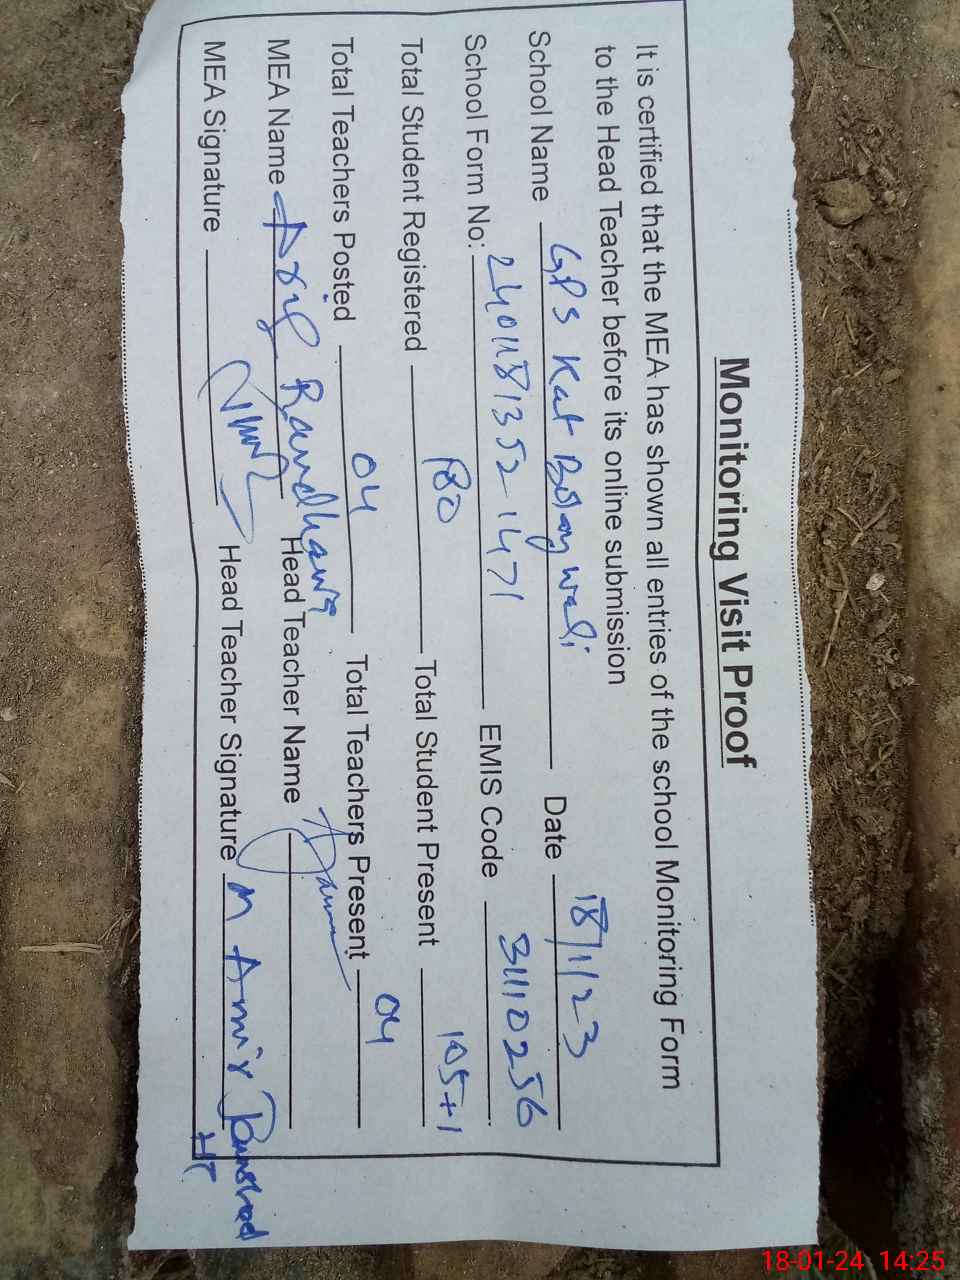 Monitoring Visit Proof
It is certified that the MEA has shown all entries of the school Monitoring Form
to the Head Teacher before its online submission
School Name GPS Kat Date 18/1/23
School Form No: 24011813521471 EMIS Code 31110256
Total Student Registered 180 Total Student Present 105+1
Total Teachers Posted 04 Total Teachers Present 04
MEA Name Arif Randhawa Head Teacher Name
MEA Signature Head Teacher Signature M Amir Jamshad
HT
18-01-24 14:25